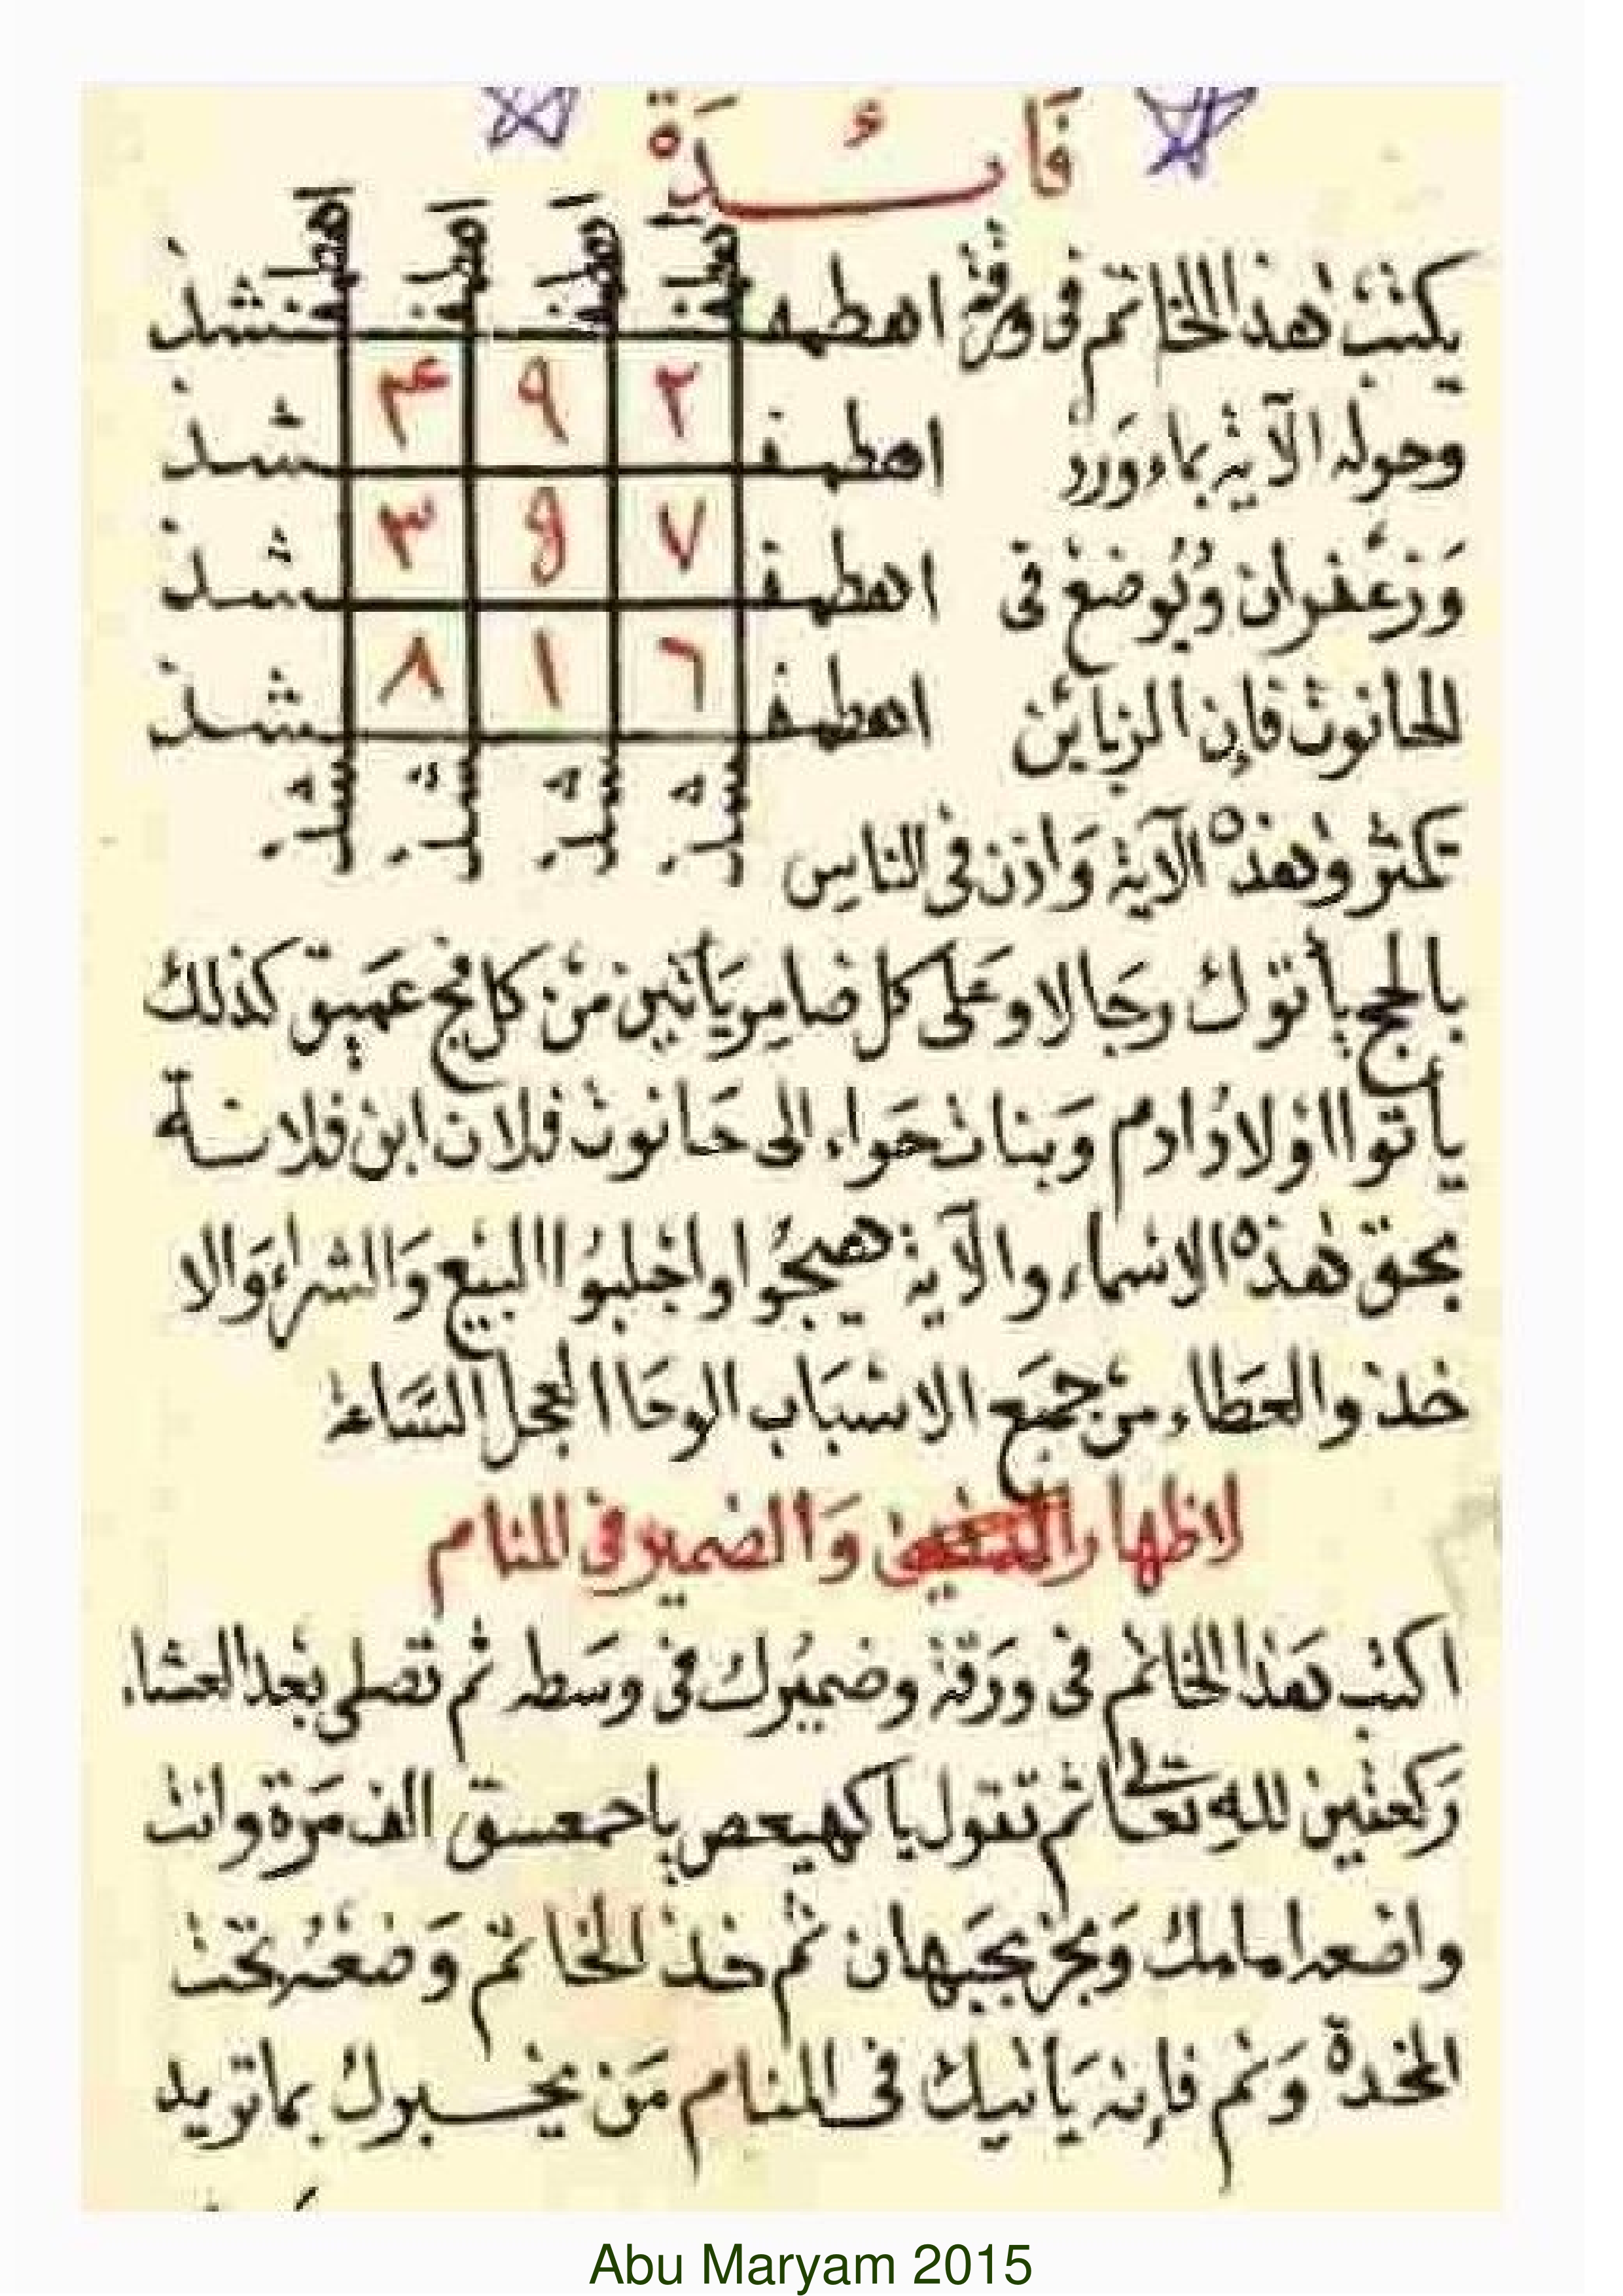 فَائدَة
يكتب هذا الخاتم فى ورقة اهطمفشذ
وحوله الآية بماء ورد اهطمفشذ
۴ ۹ ۲
وَزعفران ويُوضع فى اهطمفشذ
۳ ۷
الحانوت فإن الزبائن اهطمفشذ
۸ ۱ ٦
تكثر وهذه الآية وَاذن فى الناس
بالحج يأتوك رجَالا وعَلى كل ضامر يَأتين من كل فج عَميق كذلك
ياتوا اولاد ادم وَبنات حَواء الى حَانوت فلان ابن فلانة
بحق هذه الاسماء والآية هيجُوا واجْلبوُا البيع وَالشراء وَالا
خذ والعَطاء من جمَيع الاسبَاب الوحَا العجل السَّاعة
لاظهار وَالضمير فى المنام
اكتب هَذا الخاتم فى ورَقة وضميرُك فى وسَطه ثم تصَلى بَعد العشاء
رَكعتين للهِ تعَالى ثم تَقول يا كهيعص يا حمعسق الف مَرة وانت
واضعه امامك وَبخر بجَبهان ثم خذ الخاتم وَضعْهُ تحت
المخدة وَنم فإنه يَاتيك فى المنام مَن يخبرك بما تريد
Abu Maryam 2015